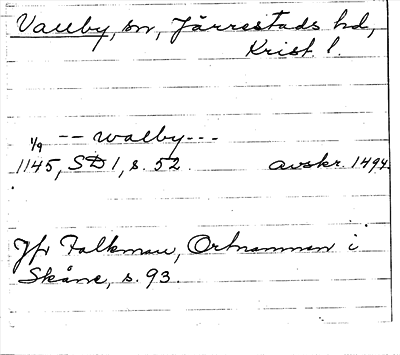 Vallby, sn, Järrestads hd,
Krist. l.
1/9 -- walby ---
1145, SD 1, s. 52 avskr. 1494
Jfr Falkman, Ortnamnen i
Skåne, s. 93.